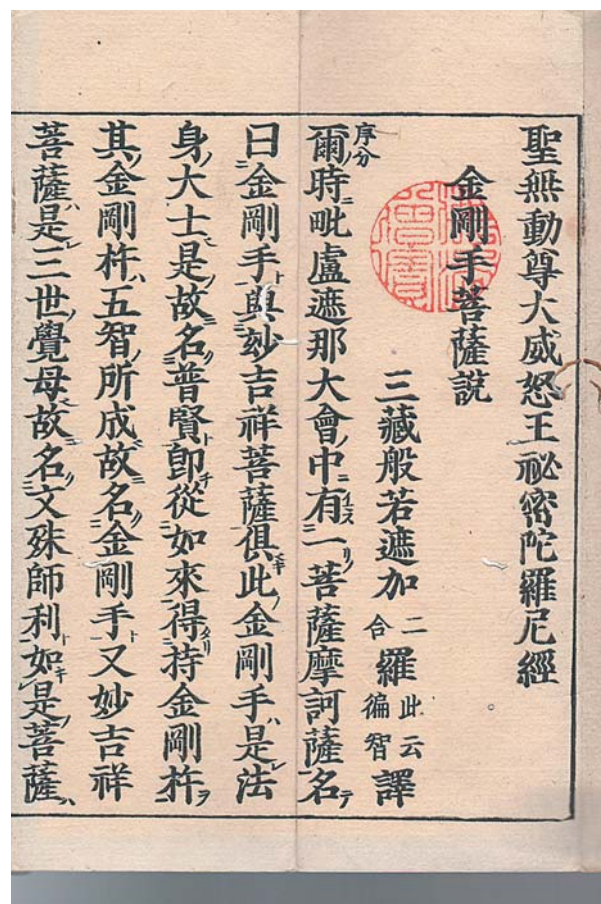 聖無動尊大威怒王祕密陀羅尼經
金剛手菩薩説
三藏般若遮加二合羅此云徧智譯
序分
爾時毗盧遮那大會中有一菩薩摩訶薩名
曰金剛手與玅吉祥菩薩俱此金剛手是法
身大士是故名普賢卽從如來得持金剛杵
其金剛杵五智所成故名金剛手又妙吉祥
菩薩是三世覺母故名文殊師利如是菩薩